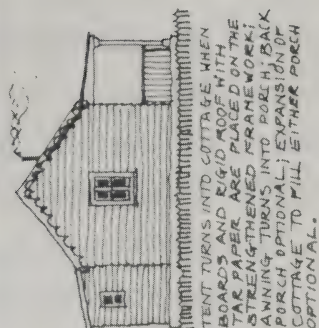 TENT TURNS INTO COTTAGE WHEN
BOARDS AND RIGID ROOF WITH
TAR PAPER ARE PLACED ON THE
STRENGTHENED FRAMEWORK;
AWNING TURNS INTO PORCH; BACK
PORCH OPTIONAL; EXPANSION OF
COTTAGE TO FILL EITHER PORCH
OPTIONAL.